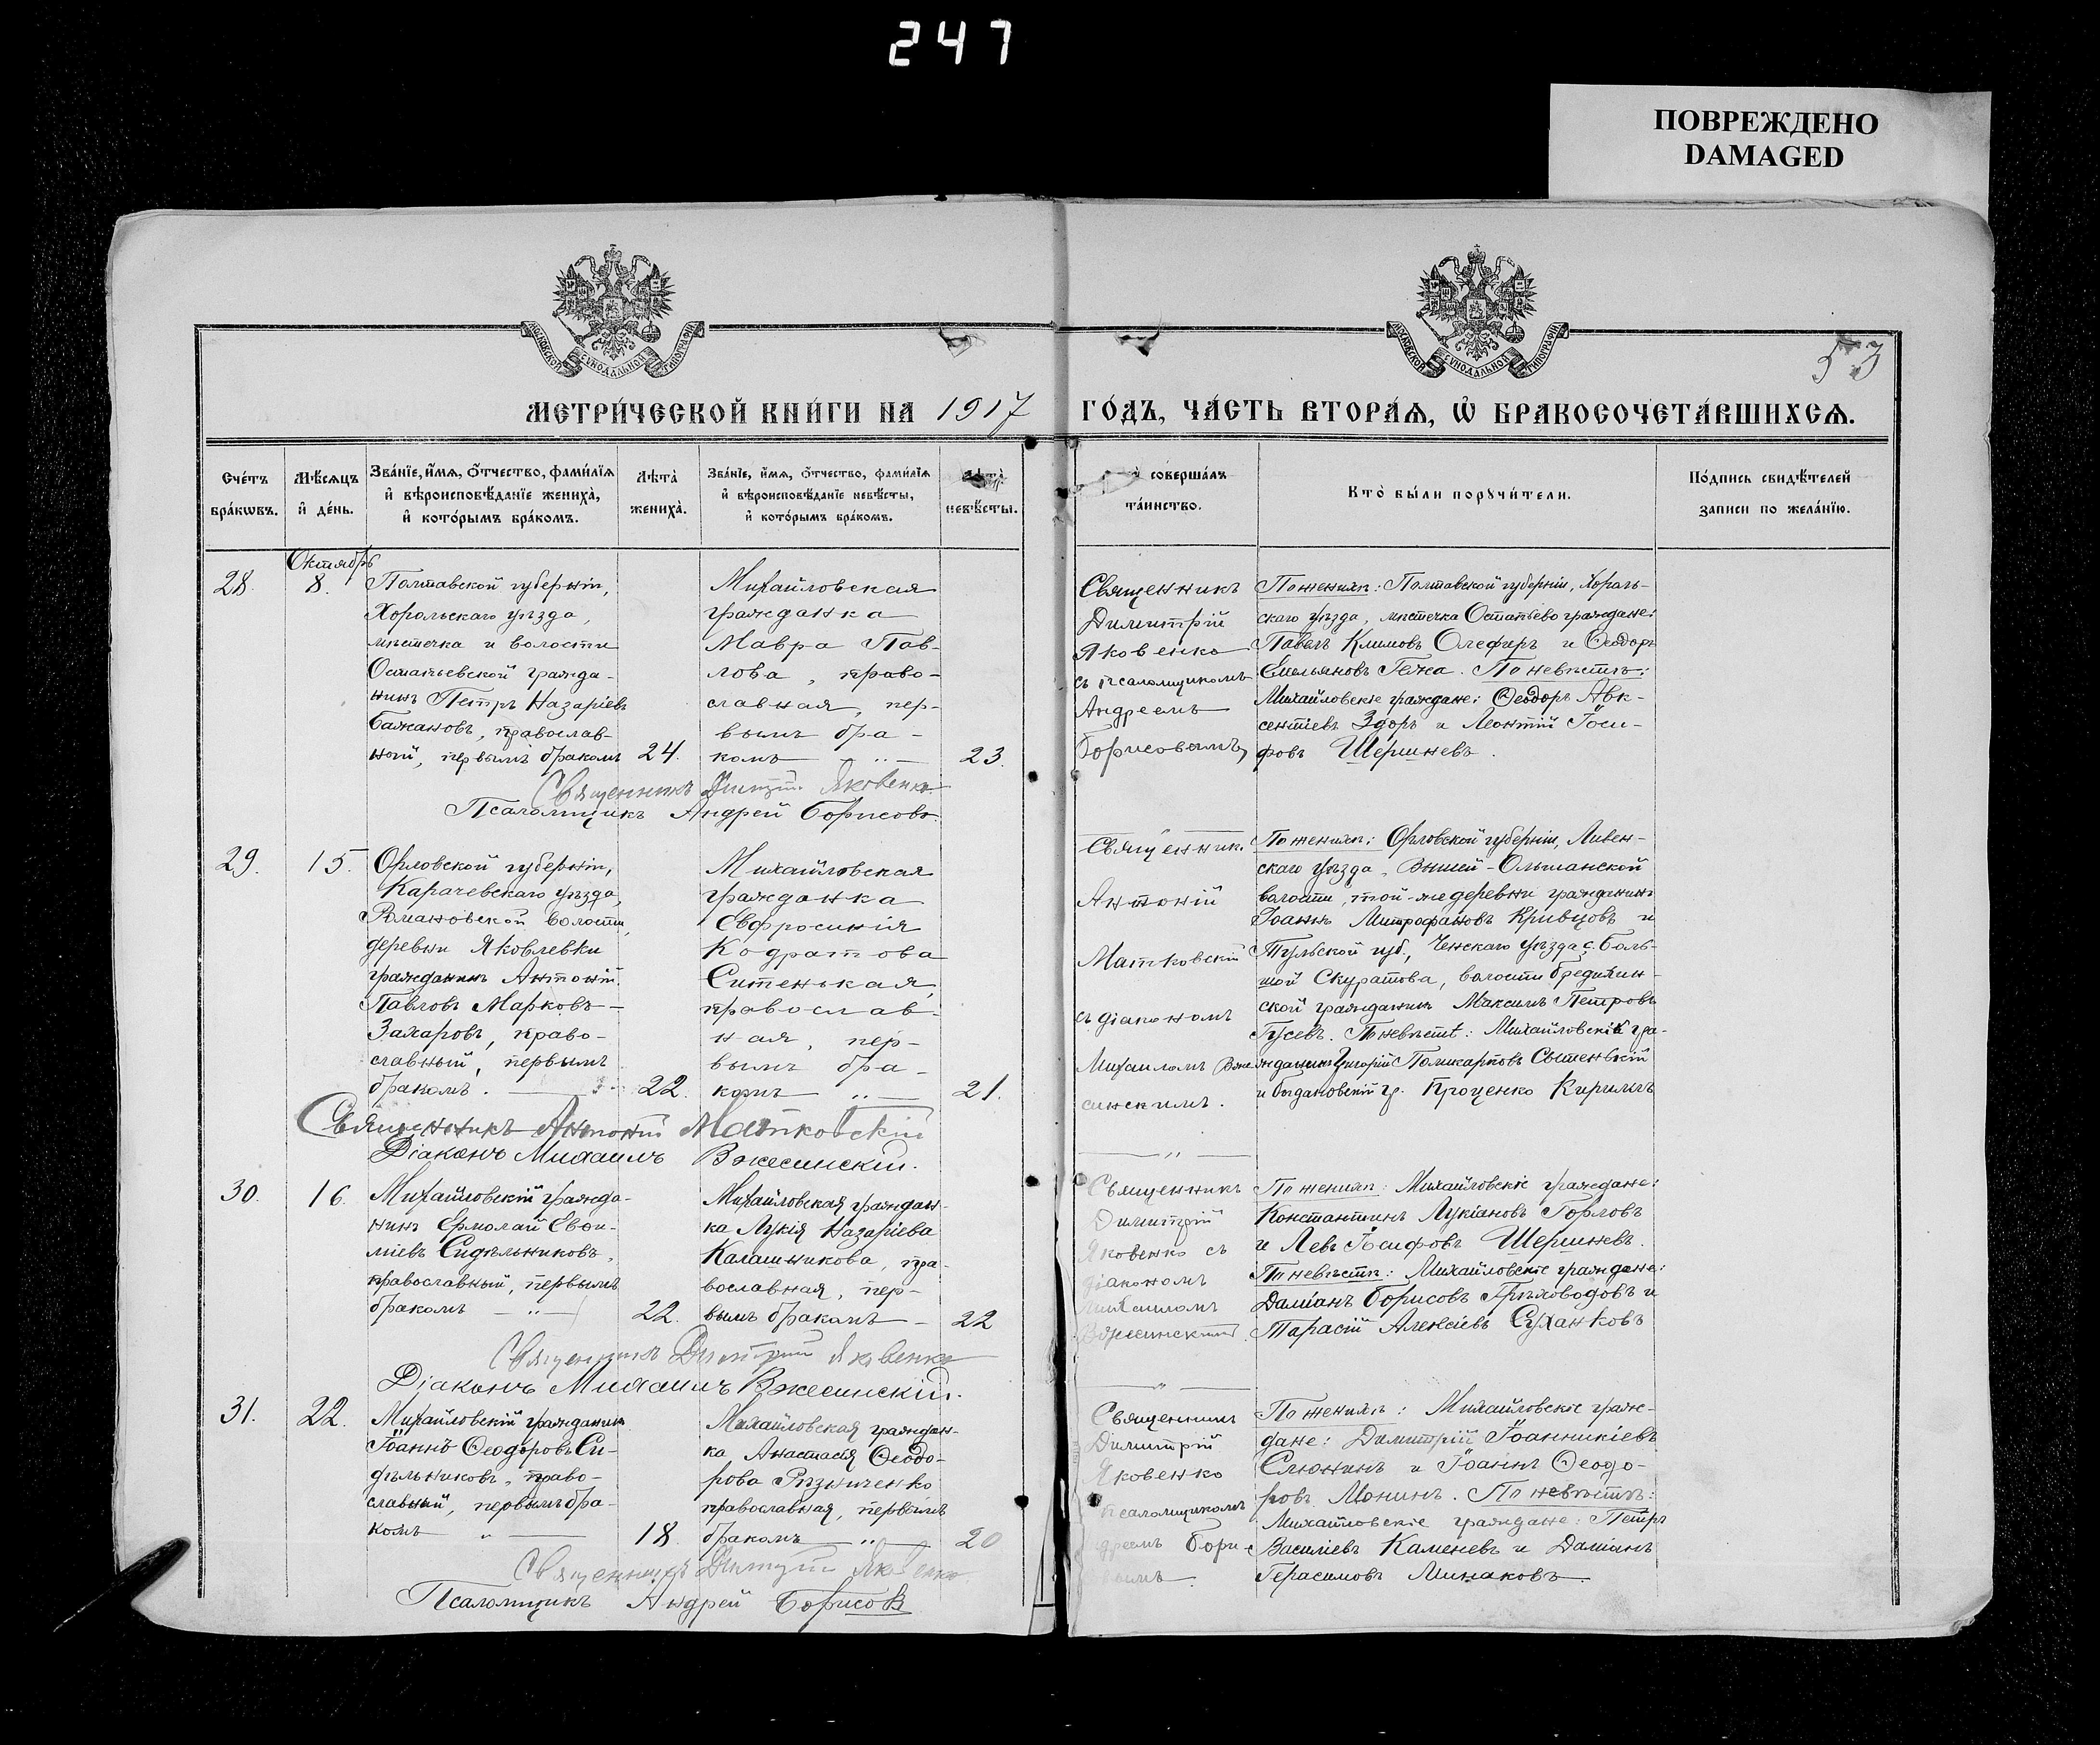 247
ПОВРЕЖДЕНО
DAMAGED
МОСКОВСКОЙ СѴНОДАЛЬНОЙ ТИПОГРАФІИ
МОСКОВСКОЙ СѴНОДАЛЬНОЙ ТИПОГРАФІИ
53
МЕТРИ́ЧЕСКОЙ КНИ́ГИ НА 1917 ГО́ДЪ, ЧА́СТЬ ВТОРА́Ѧ, Ѡ҆ БРАКОСОЧЕТА́ВШИХСѦ.
Сче́тъ
бра́кѡвъ.
Мѣ́сѧцъ
и҆ де́нь.
Зва́нїе, и҆́мѧ, ѻ҆́тчество, фами́лїѧ
и҆ вѣроисповѣ́данїе жениха̀,
и҆ кото́рымъ бра́комъ.
Лѣ́та̀
жениха̀.
Зва́нїе, и҆́мѧ, ѻ҆́тчество, фами́лїѧ
и҆ вѣроисповѣ́данїе невѣ́сты,
и҆ кото́рымъ бра́комъ.
Лѣ́та̀
невѣ́сты.
соверша́лъ
та́инство.
Кто̀ бы́ли порꙋчи́тели.
По́дпись свидѣ́телей
записи по жела́нїю.
Октябрь
28.
8.
Полтавской губерніи,
Хорольскаго уѣзда,
мѣстечка и волости
Остапьевской гражда-
нинъ Петръ Назаріевъ
Бажановъ, православ-
ной, первымъ бракомъ
24.
Михайловская
гражданка
Мавра Пав-
лова, право-
славная, пер-
вымъ бра-
комъ
23.
Священникъ
Димитрій
Яковенко
съ псаломщикомъ
Андреемъ
Борисовымъ
По женихѣ: Полтавской губерніи, Хороль-
скаго уѣзда, мѣстечка Остапьево граждане:
Павелъ Климовъ Олефиръ и Ѳеодоръ
Емельяновъ Гежа. По невѣстѣ:
Михайловскіе граждане: Ѳеодоръ Авк-
сентіевъ Здоръ и Леонтій Іоси-
фовъ Шершневъ.
Священникъ Димитрій Яковенко
Псаломщикъ Андрей Борисовъ
29.
15.
Орловской губерніи,
Карачевскаго уѣзда,
волости,
деревни Яковлевки
гражданинъ Антоній
Павловъ Марковъ-
Захаровъ, право-
славный, первымъ
бракомъ.
22.
Михайловская
гражданка
Евфросинія
Кодратова
Ситенькая,
православ-
ная, пер-
вымъ бра-
комъ
21.
Священникъ
Антоній
Матковскій
съ діакономъ
Михаиломъ Вже-
синскимъ.
По женихѣ: Орловской губерніи, Ливен-
скаго уѣзда, Вышей-Ольшанской
волости, той-же деревни гражданинъ
Іоаннъ Митрофановъ Кривцовъ и
Тульской губ., Ченскаго уѣзда с. Боль-
шой Скуратова, волости Бредихин-
ской гражданинъ Максимъ Петровъ
Гусевъ. По невѣстѣ: Михайловскій гра-
жданинъ Григорій Поликарповъ Сытенькій
и Богдановскій гр. Проценко Кирилъ
Священникъ Антоній Матковскій
Діаконъ Михаилъ Вжесинскій.
30.
16.
Михайловскій гражда-
нинъ Ермолай Евѳи-
міевъ Сидѣльниковъ,
православный, первымъ
бракомъ
22.
Михайловская граждан-
ка Лукія Назаріева
Калашникова, пра-
вославная, пер-
вымъ бракомъ
22
Священникъ
Димитрій
Яковенко съ
діакономъ
Михаиломъ
Вжесинскимъ
По женихѣ: Михайловскіе граждане:
Константинъ Лукіановъ Горловъ
и Левъ Іосифовъ Шершневъ.
По невѣстѣ: Михайловскіе граждане:
Даміанъ Борисовъ Грѣховодовъ и
Тарасій Алексіевъ Суханковъ
Священникъ Димитрій Яковенко
Діаконъ Михаилъ Вжесинскій.
31.
22.
Михайловскій гражданинъ
Іоаннъ Ѳеодоровъ Си-
дѣльниковъ, право-
славный, первымъ бра-
комъ
18
Михайловская граждан-
ка Анастасія Ѳеодо-
рова Рѣзниченко
православная, первымъ
бракомъ
20
Священникъ
Димитрій
Яковенко
псаломщикомъ
дреемъ Бори-
вымъ
По женихѣ: Михайловскіе граж-
дане: Димитрій Іоанникіевъ
Слюнинъ и Іоаннъ Ѳеодо-
ровъ Монинъ. По невѣстѣ:
Михайловскіе граждане: Петръ
Василіевъ Каменевъ и Даміанъ
Герасимовъ Минаковъ.
Священникъ Димитрій Яковенко
Псаломщикъ Андрей Борисов